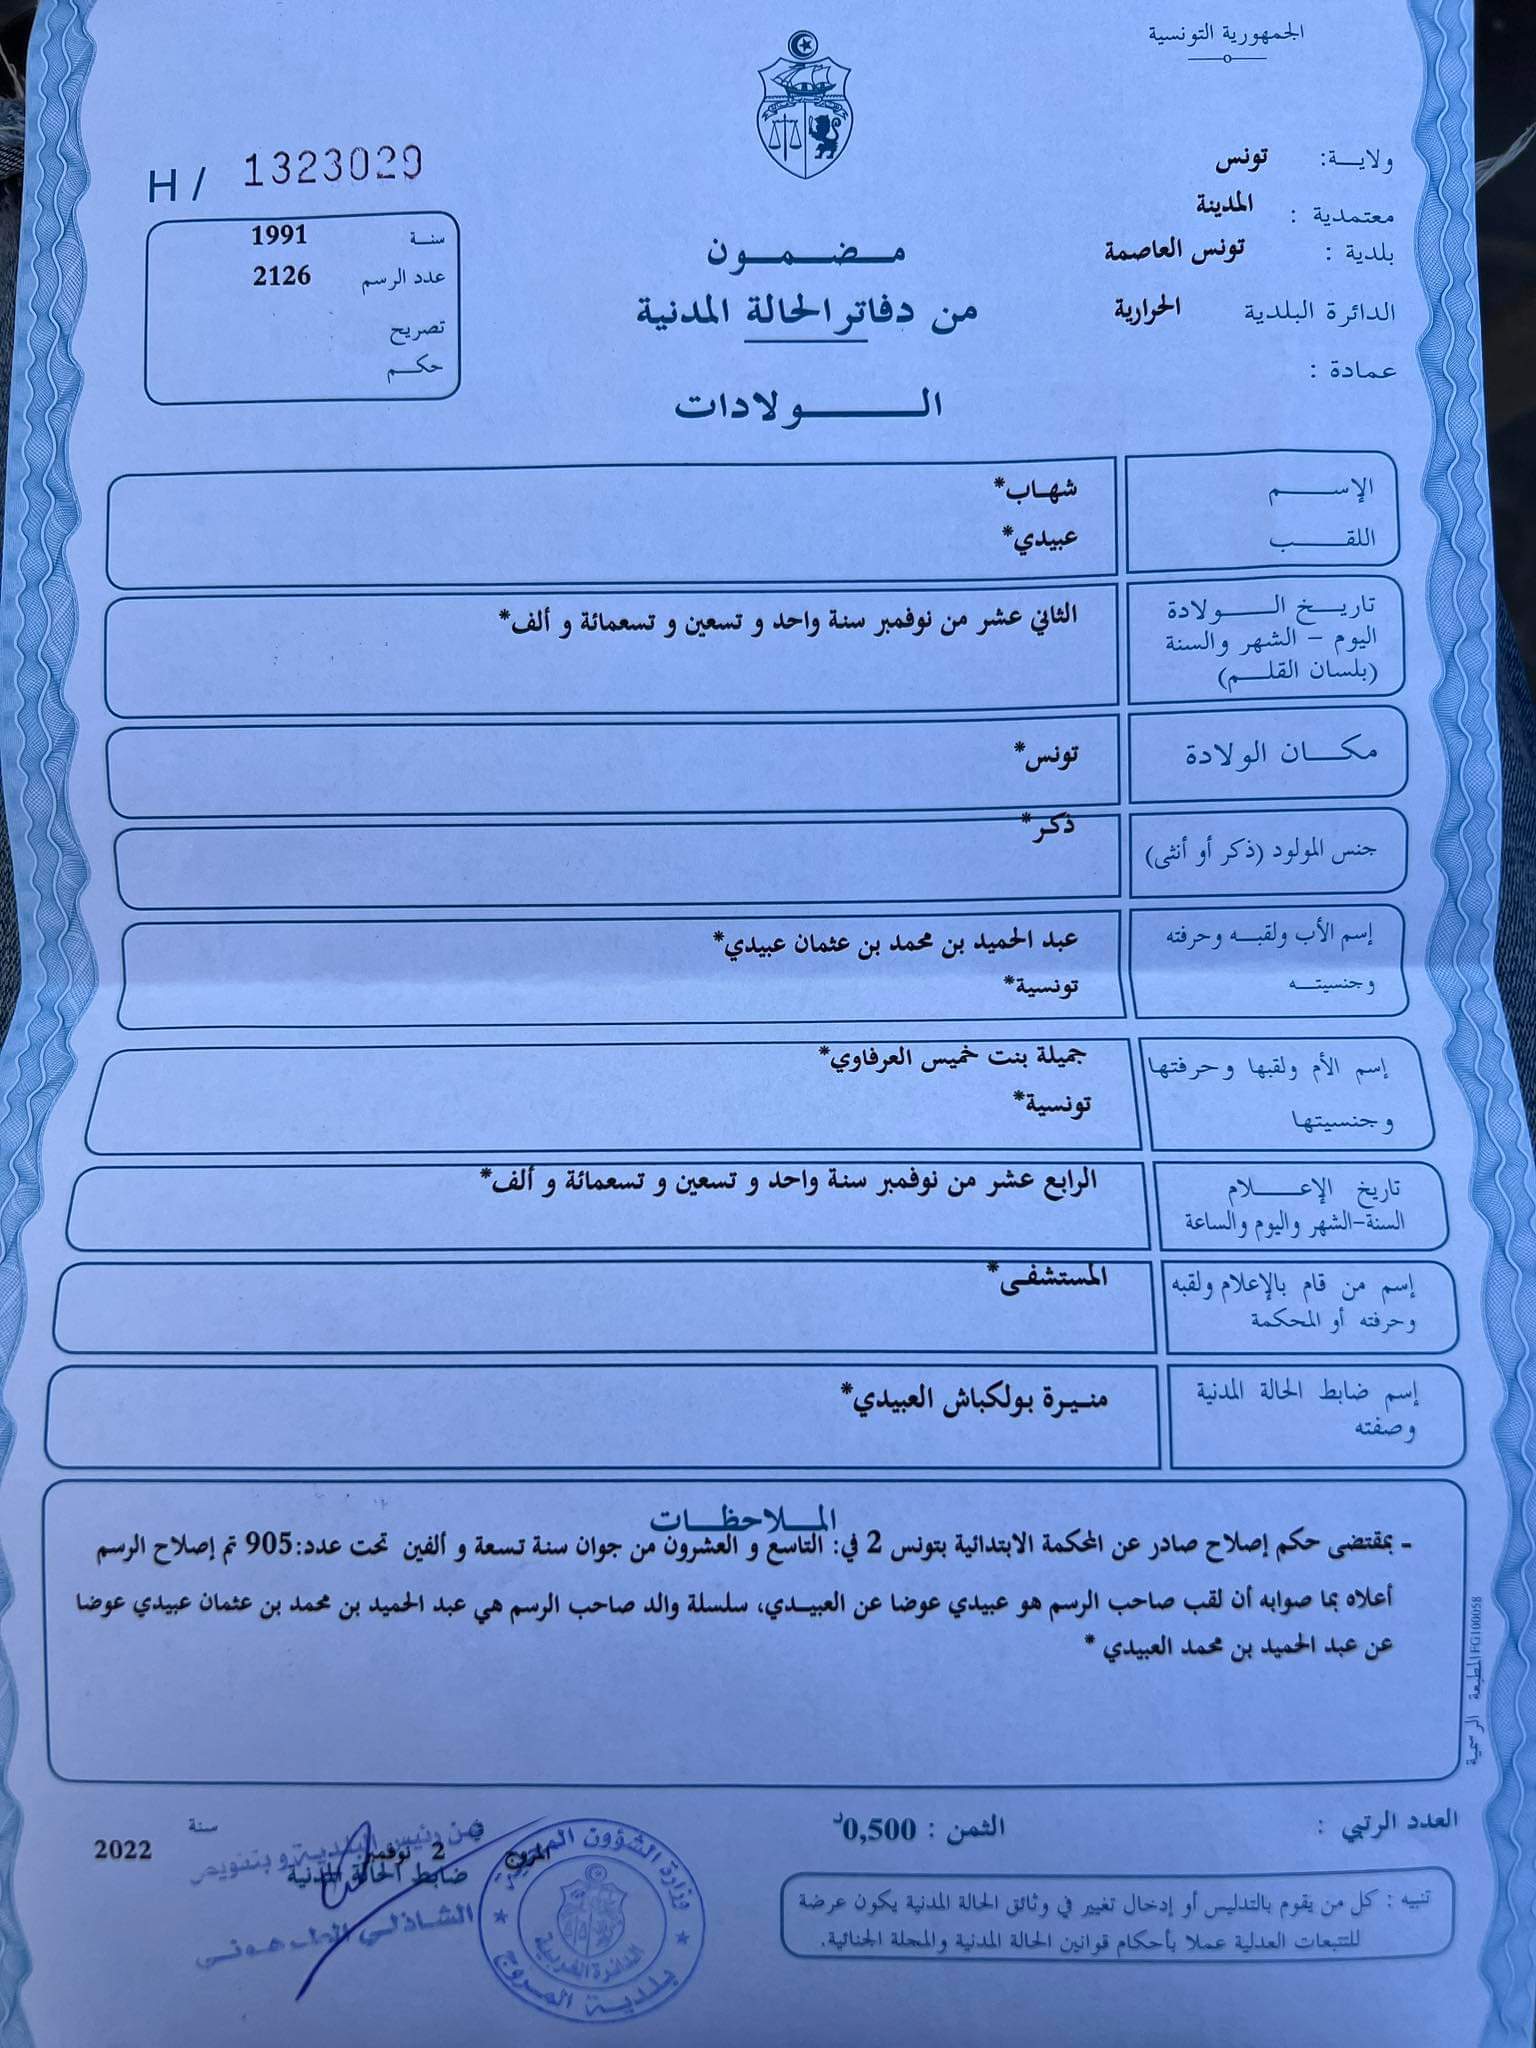 الجمهورية التونسية
ولايـــة: تونس
معتمدية : المدينة
بلدية : تونس العاصمة
الدائرة البلدية الحرارية
عمادة :
H / 1323029
سنة 1991
عدد الرسم 2126
تصريح
حكم
مضمون
من دفاتر الحالة المدنية
الولادات
الإسم شهاب*
اللقب عبيدي*
تاريخ الولادة الثاني عشر من نوفمبر سنة واحد و تسعين و تسعمائة و ألف*
اليوم - الشهر والسنة
(بلسان القلم)
مكان الولادة تونس*
جنس المولود (ذكر أو أنثى) ذكر*
إسم الأب ولقبه وحرفته عبد الحميد بن محمد بن عثمان عبيدي*
وجنسيته تونسية*
إسم الأم ولقبها وحرفتها جميلة بنت خميس العرفاوي*
وجنسيتها تونسية*
تاريخ الإعلام الرابع عشر من نوفمبر سنة واحد و تسعين و تسعمائة و ألف*
السنة-الشهر واليوم والساعة
إسم من قام بالإعلام ولقبه المستشفى*
وحرفته أو المحكمة
إسم ضابط الحالة المدنية منيرة بولكباش العبيدي*
وصفته
الملاحظات
- بمقتضى حكم إصلاح صادر عن المحكمة الابتدائية بتونس 2 في: التاسع و العشرون من جوان سنة تسعة و ألفين تحت عدد:905 تم إصلاح الرسم
أعلاه بما صوابه أن لقب صاحب الرسم هو عبيدي عوضا عن العبيدي، سلسلة والد صاحب الرسم هي عبد الحميد بن محمد بن عثمان عبيدي عوضا
عن عبد الحميد بن محمد العبيدي *
المطبعة الرسمية FG100058
العدد الرتبي :
الثمن : 0,500د
تنبيه : كل من يقوم بالتدليس أو إدخال تغيير في وثائق الحالة المدنية يكون عرضة
للتتبعات العدلية عملا بأحكام قوانين الحالة المدنية والمجلة الجنائية.
المروج في 2 نوفمبر سنة 2022
ضابط الحالة المدنية
عن رئيس البلدية و بتفويض
الشاذلي
وزارة الشؤون المحلية
الدائرة الغربية
بلدية المروج